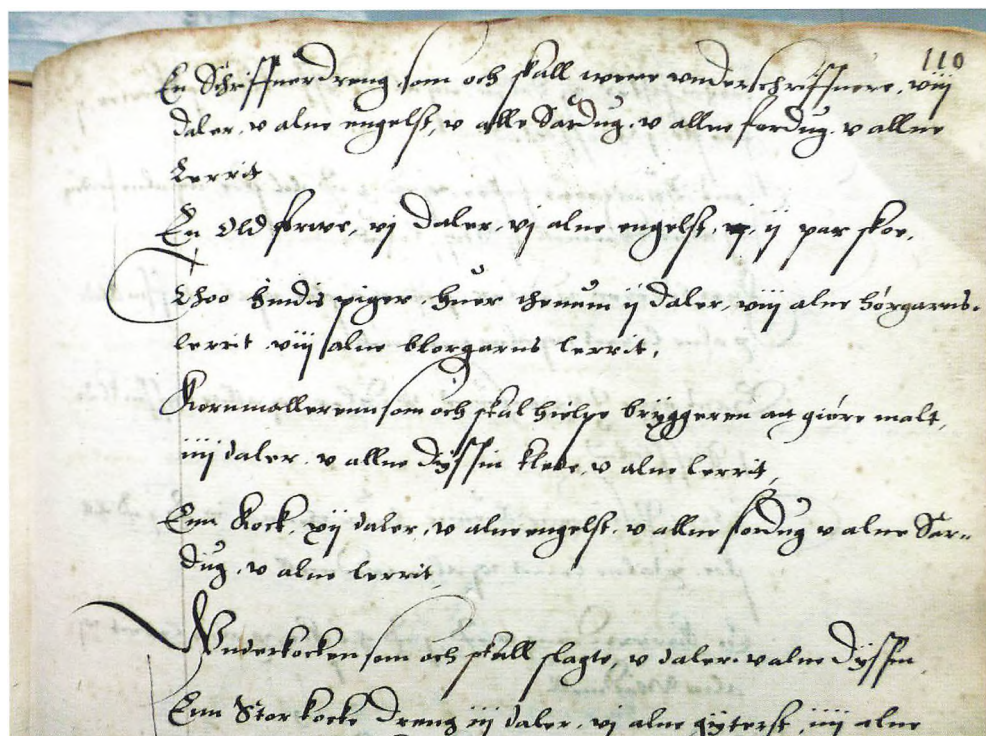 110
En Schriffuerdreng, som och skall were vnderschriffuere, viij
daler, v alne engelst, v alle Sardug, v allne fordug, v allne
Lerrit
En Oldfrwe, vj daler, vj alne engelst, ij par skoe,
Thoo hindis piger, huer thenum ij daler, viij alne hørgarns-
lerrit viij alne blorgarns lerrit,
Kornmøllerenn som och skal hielpe bryggeren att giøre malt,
iiij daler, v allne dyssin klede, v alne lerrit,
Enn Kock, xij daler, v alne engelst, v allne fordug v alne Sar-
dug, v alne lerrit,
Wnderkocken som och skall slagte, v daler, v alne dyssin,
Enn Storkocke dreng iij daler, vj alne gyterst, iiij alne